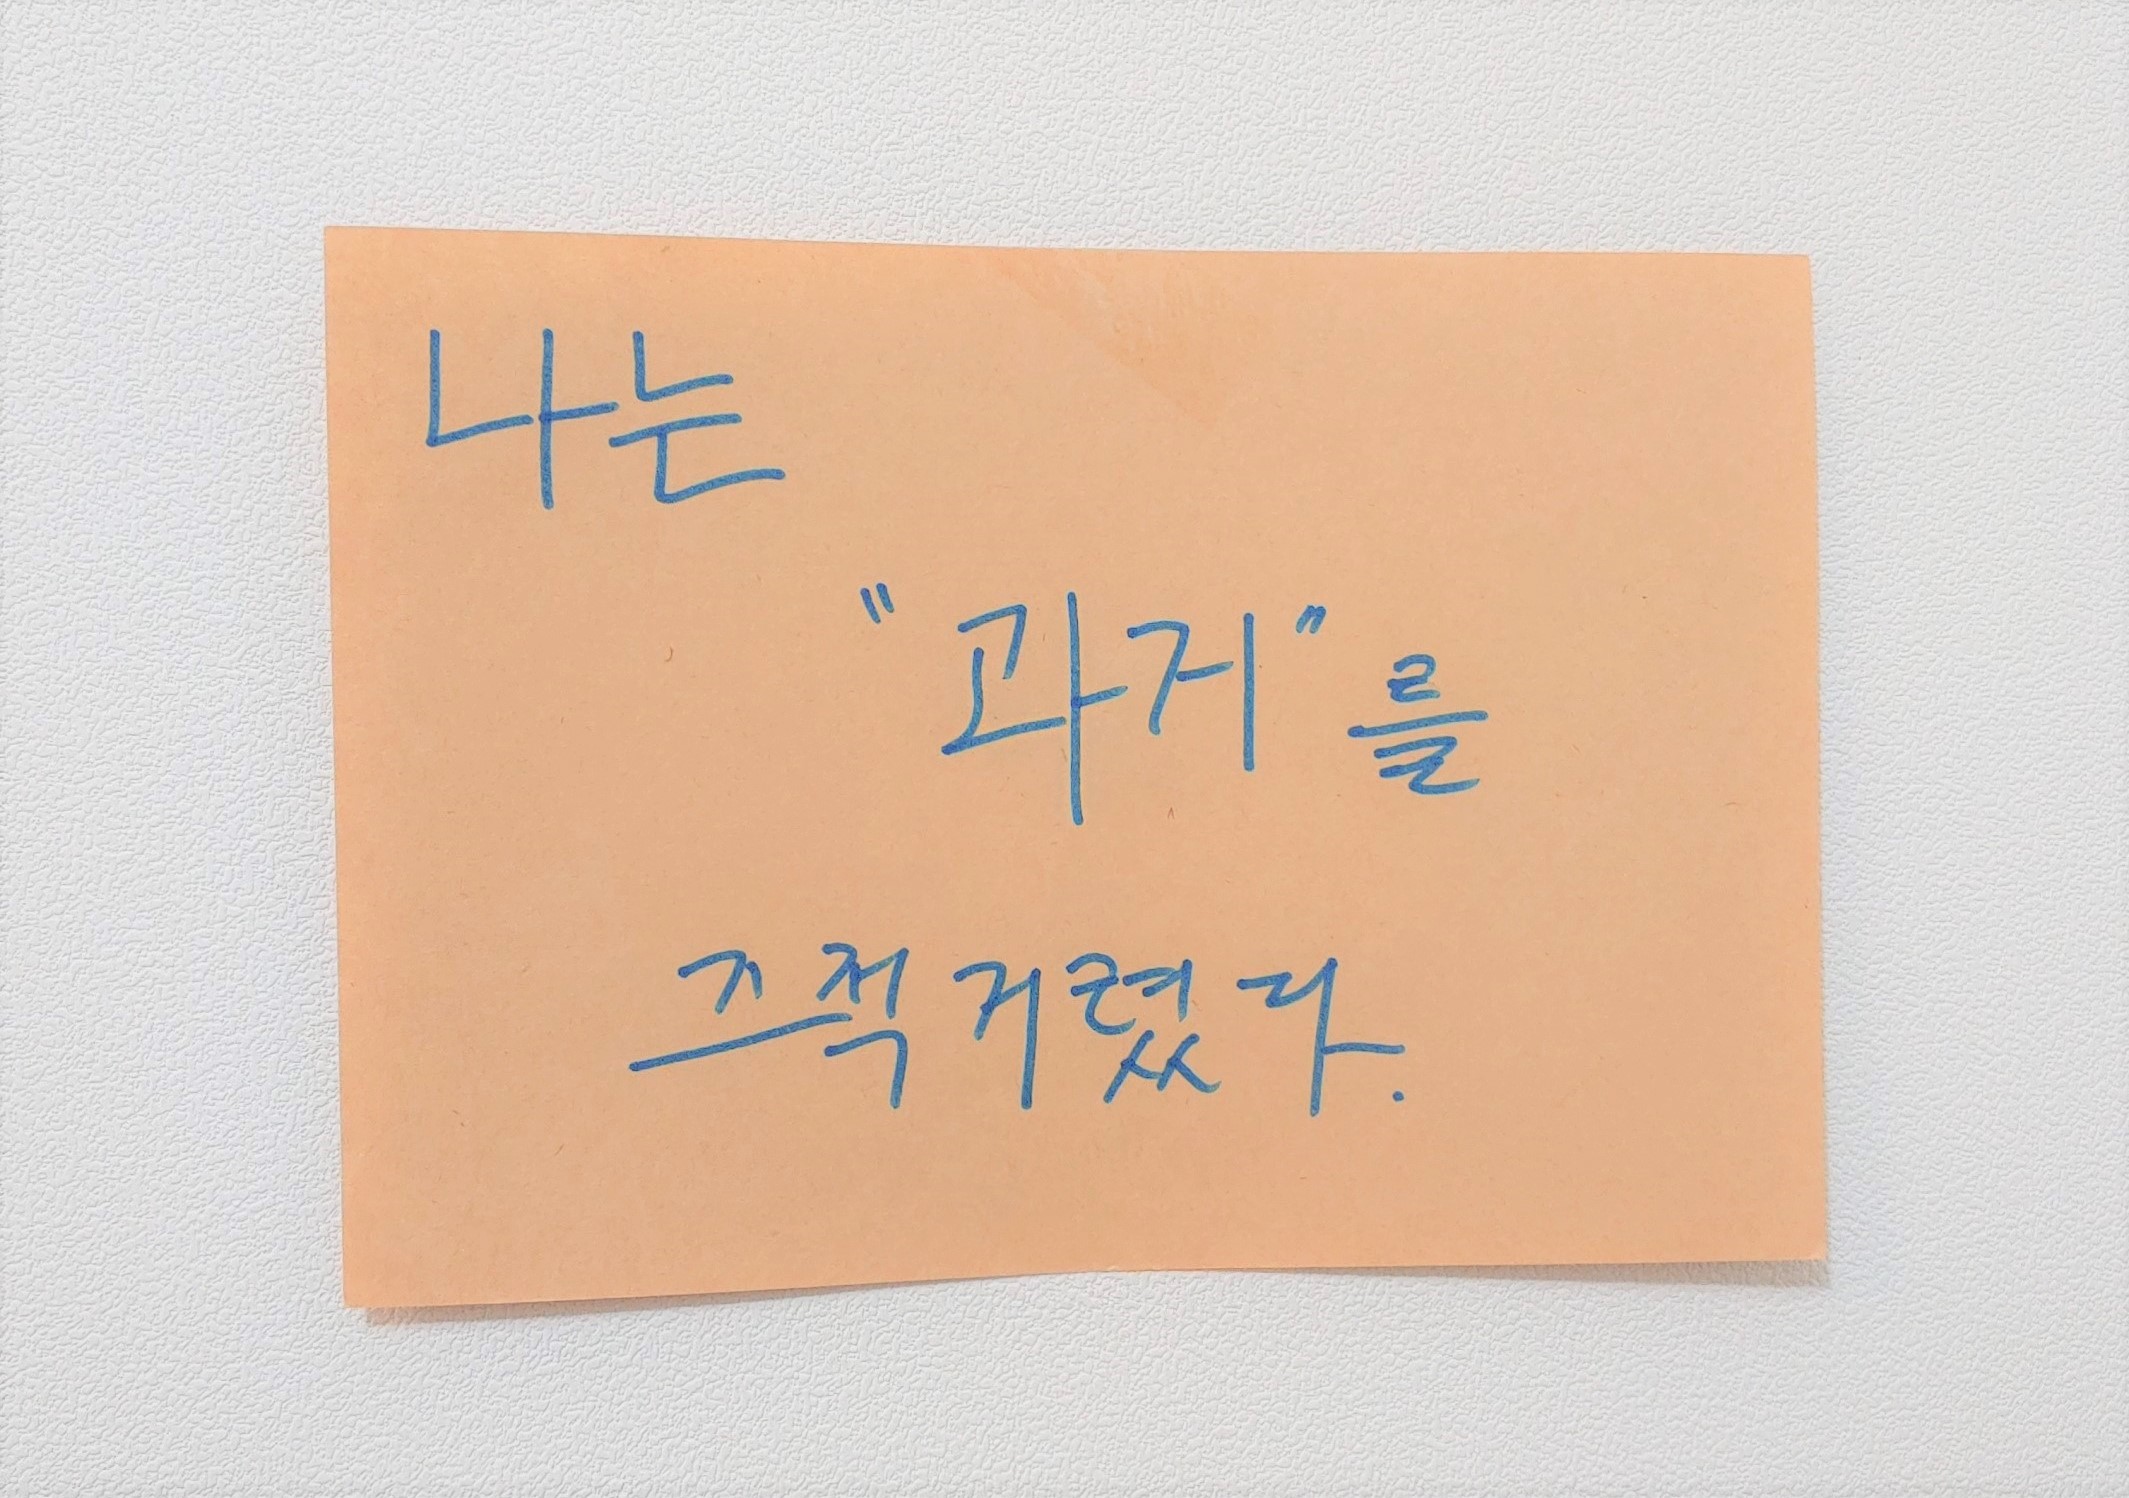 나는
"과거"를
즈적거렸다.